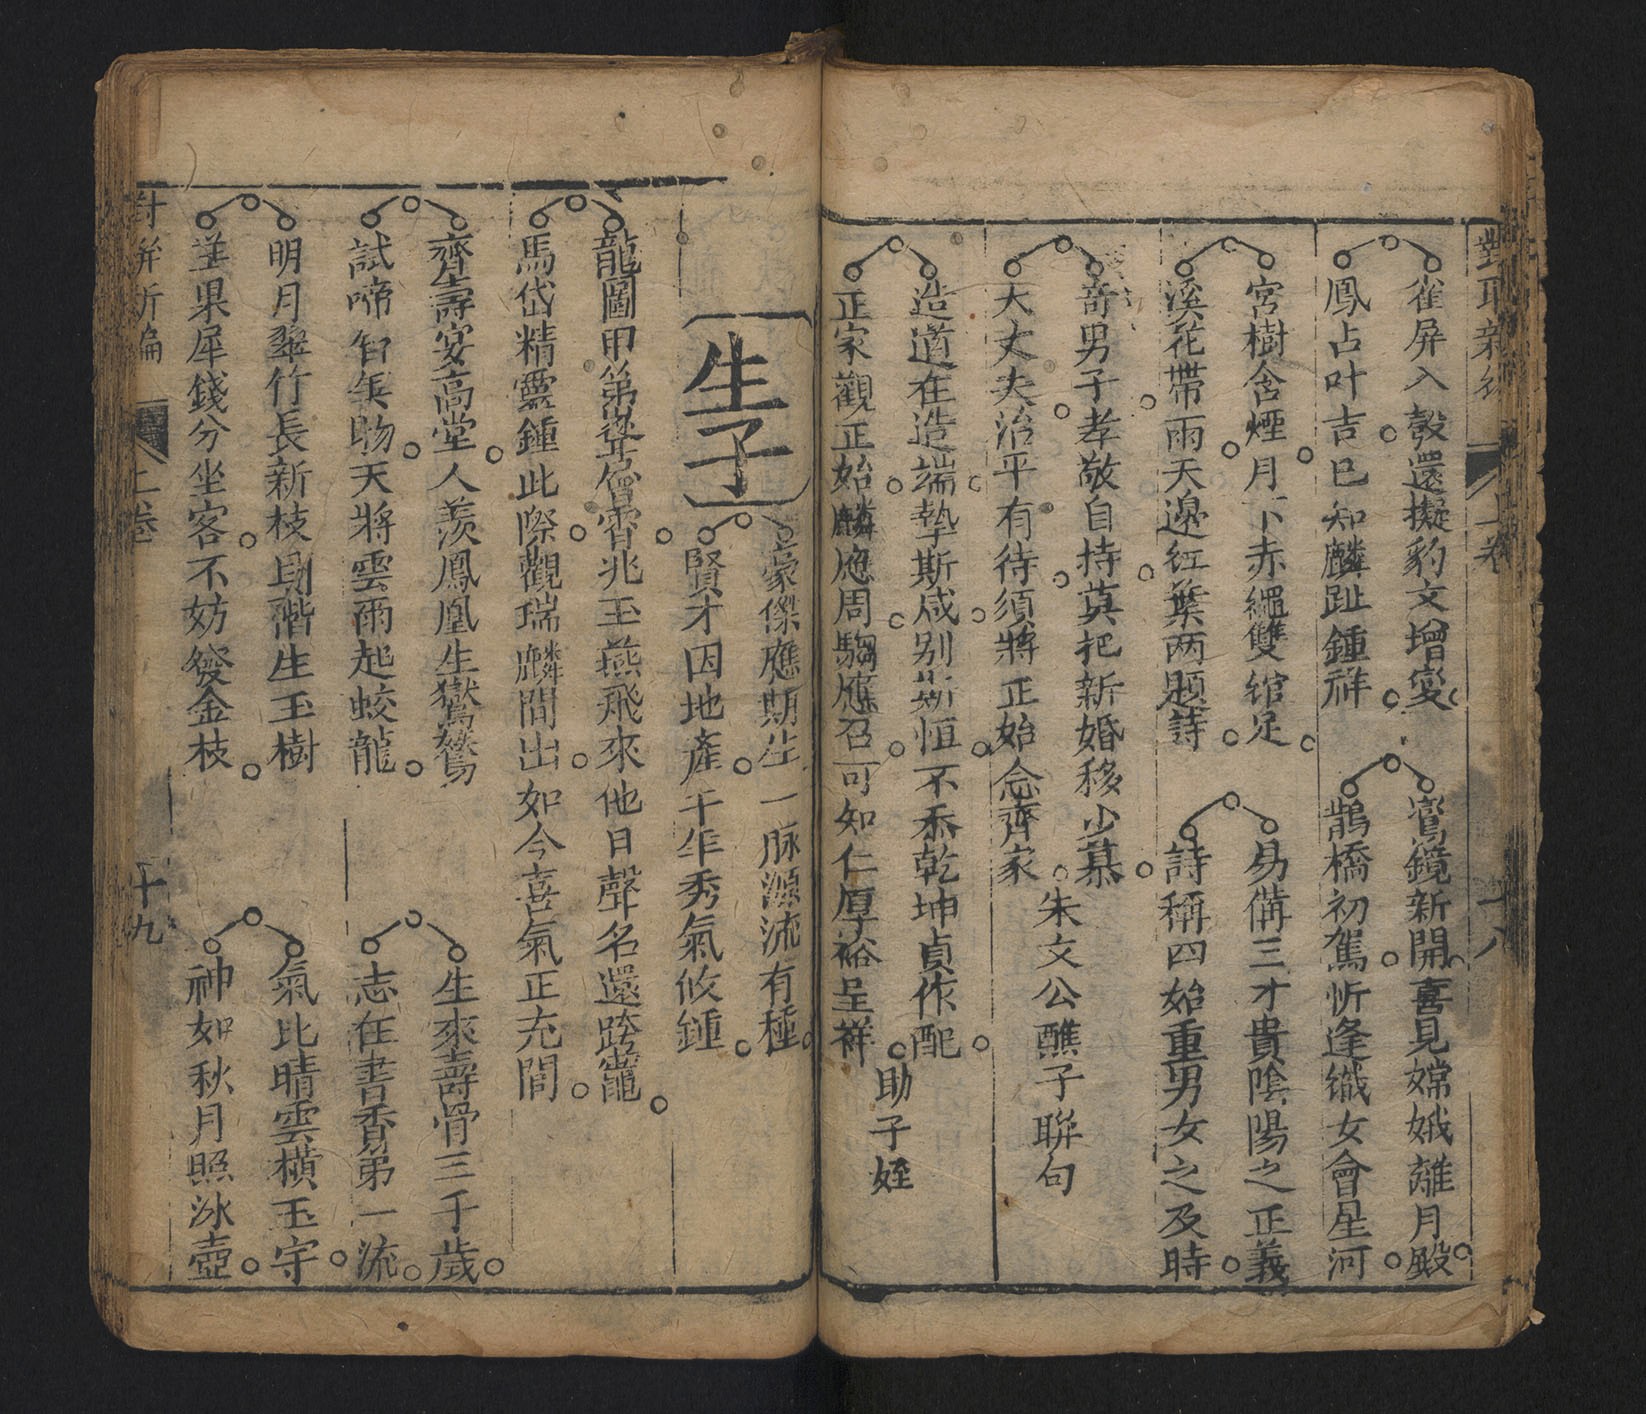 上卷
十八
雀屏入彀還擬豹文增变
鳳占叶吉已知麟趾鍾祥
鸞鏡新開喜見嫦娥離月殿
鵲橋初駕忻逢織女會星河
宮樹含煙月下赤繩雙绾足
溪花帶雨天邊红葉两题詩
易俻三才貴陰陽之正義
詩稱四始重男女之及時
奇男子孝敬自持莫把新婚移少慕
大丈夫治平有待須將正始念齊家
朱文公醮子聯句
造道在造端摯斯咸别斯恒不忝乾坤貞作配
正家觀正始麟應周騶應召可知仁厚裕呈祥
助子姪
生子
豪傑應期生一脉源流有種
賢才因地產千年秀氣攸鍾
龍圖甲第登層霄兆玉燕飛來他日聲名還跨竈
馬岱精靈鍾此際觀瑞麟間出如今喜氣正充閭
齊壽宴高堂人羡鳳凰生鸑鷟
試啼知英物天將雲雨起蛟龍
生來壽骨三千歲
志在書香第一流
明月翠竹長新枝階生玉樹
果犀錢分坐客不妨發金枝
氣比晴雲橫玉宇
神如秋月照冰壺
上卷
十九